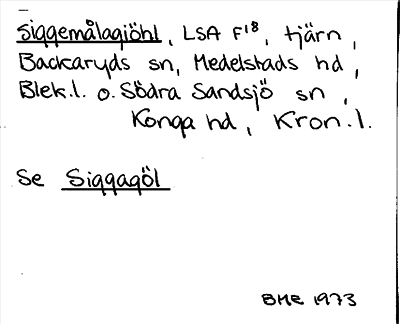 Siggemålagiöhl, LSA F18, tjärn,
Backaryds sn, Medelstads hd,
Blek.l. o. Södra Sandsjö sn,
Konga hd, Kron.l.
Se Siggagöl
BME 1973